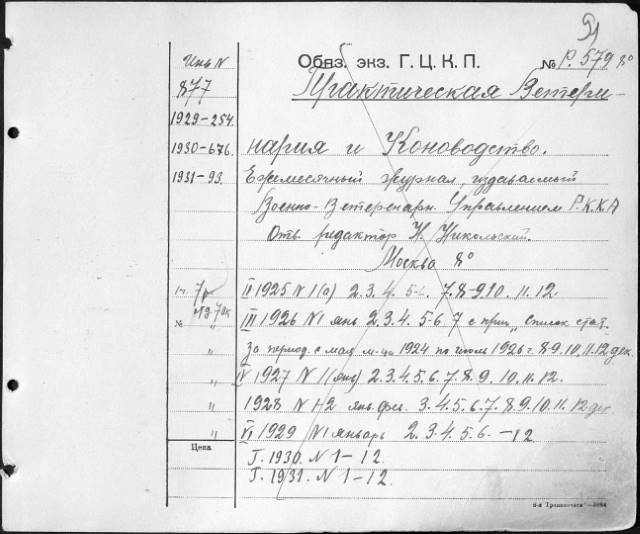 Инв N
877
1929-254.
1930-676.
1931-93.
Обяз. экз. Г.Ц.К.П. № Р. 579 8°
Практическая Ветери-
нария и Коневодство.
Ежемесячный журнал, издаваемый
Военно-Ветеринарн. Управлением Р.К.К.А
Отв. редактор Н. Никольский.
Москва 8°
II 1925 N 1(о) 2. 3. 4. 5-6. 7. 8-9. 10. 11. 12.
№ III 1926 N 1 янв 2. 3. 4. 5-6 7 с прил. „Список стат.
" за период с мая м-ца 1924 по июль 1926 г. 8-9. 10. 11. 12 дек.
" IV 1927 N 1 (янв) 2. 3. 4. 5. 6. 7. 8. 9. 10. 11. 12.
" 1928 N 1-2 янв. фев. 3. 4. 5. 6. 7. 8. 9. 10. 11. 12 дек
" VI 1929 N 1 январь 2. 3. 4. 5. 6. -12
Цена
Г. 1930. N 1-12.
Г. 1931. N 1-12.